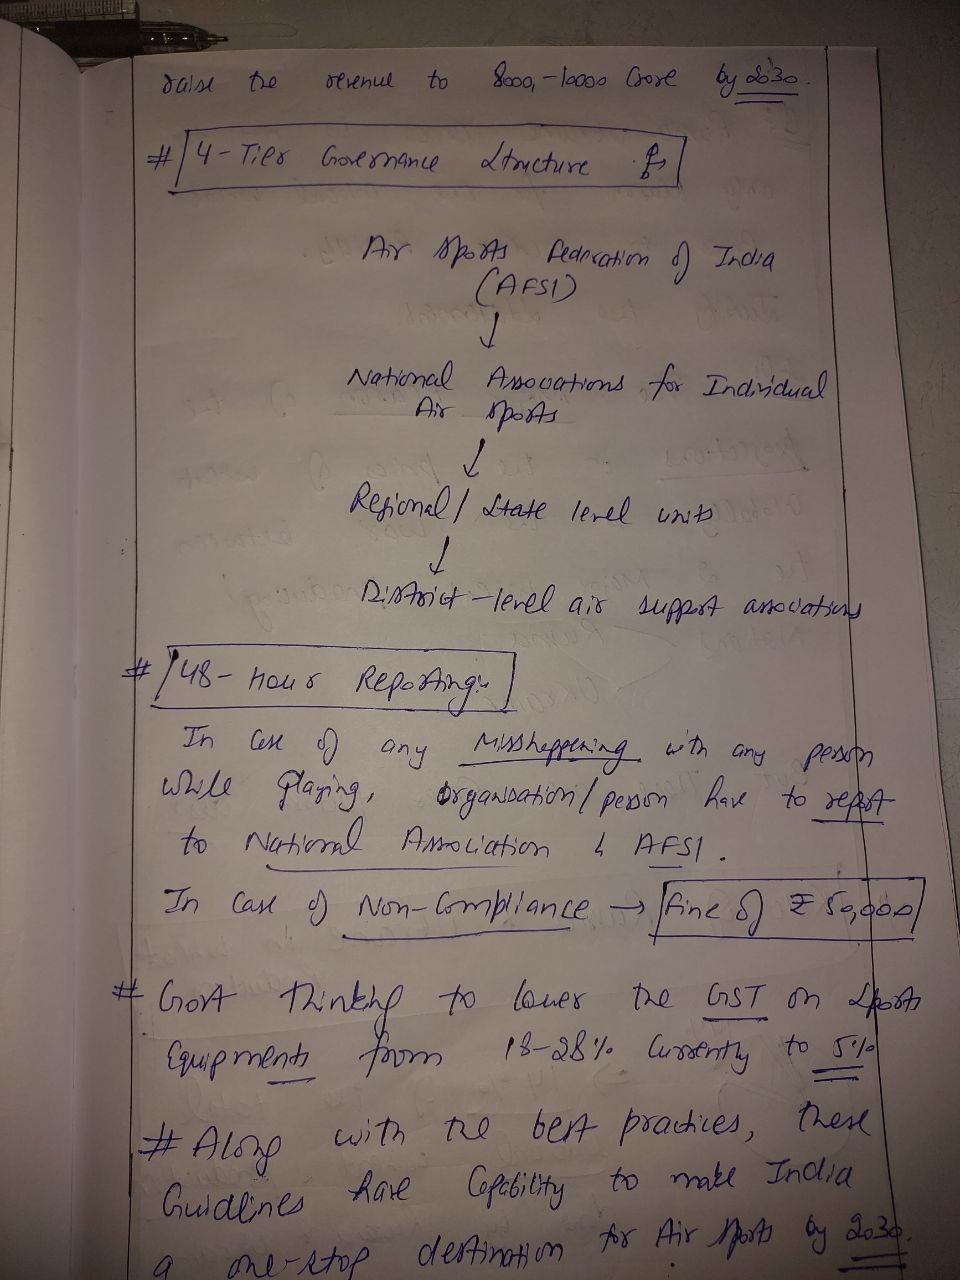 raise the revenue to 8000,-10000 Crore by 2030.
# 4-Tier Governance Structure :-
Air Sports Federation of India
(AFSI)
↓
National Associations for Individual
Air Sports
↓
Regional / State level units
↓
District-level air support associations
# 48-Hour Reporting:-
In Case of any Misshappening with any person
while playing, organisation/person have to report
to National Association & AFSI.
In Case of Non-Compliance → Fine of ₹ 50,000
# Govt thinking to lower the GST on Sports
Equipments from 18-28% Currently to 5%
# Along with the best practices, these
Guidlines have Capability to make India
a one-stop destination for Air Sports by 2030.